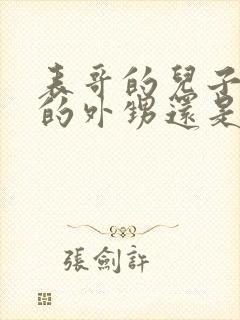 表哥的兒子
的外甥還是
張劍許